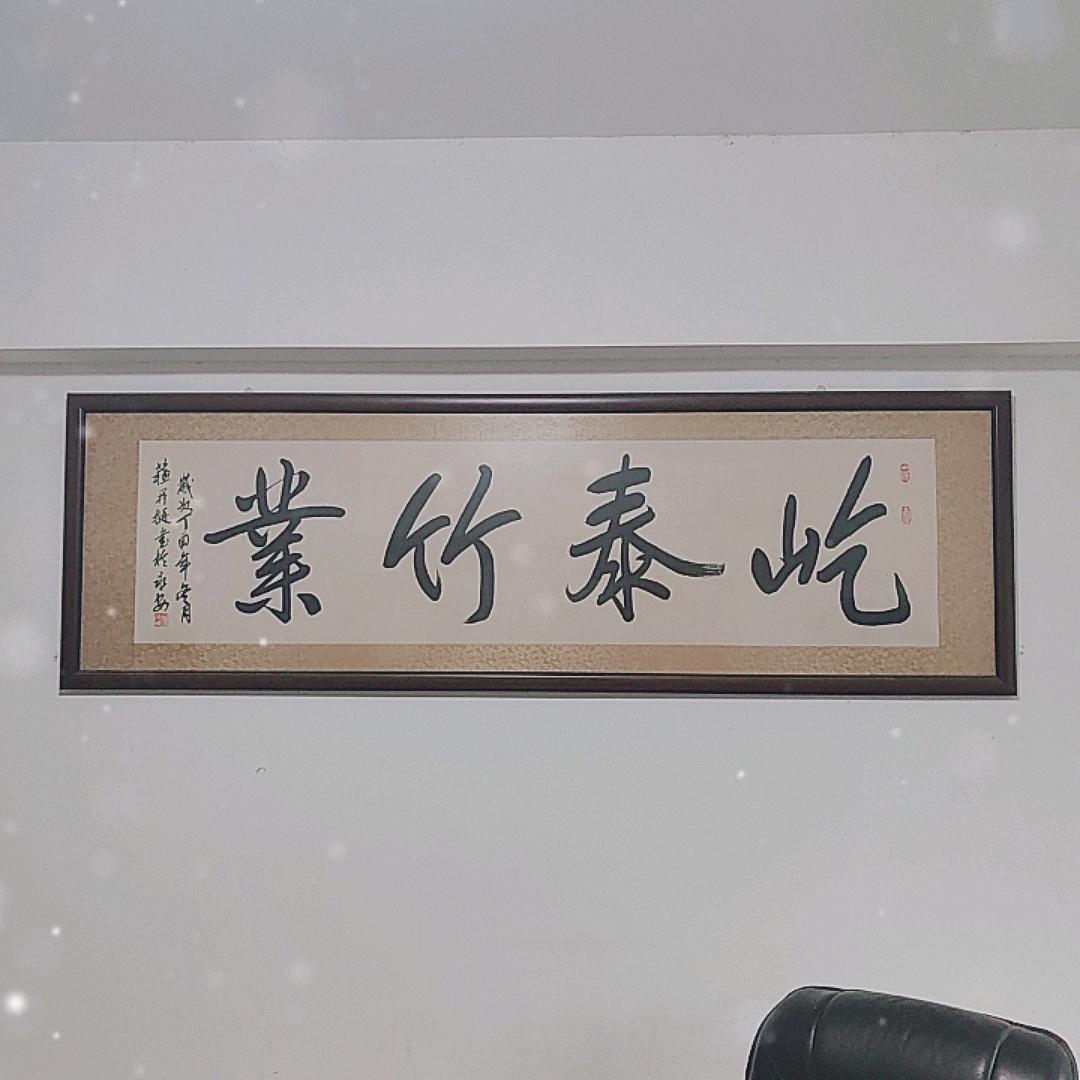 屹泰竹業
歲次丁酉年冬月
書於永安